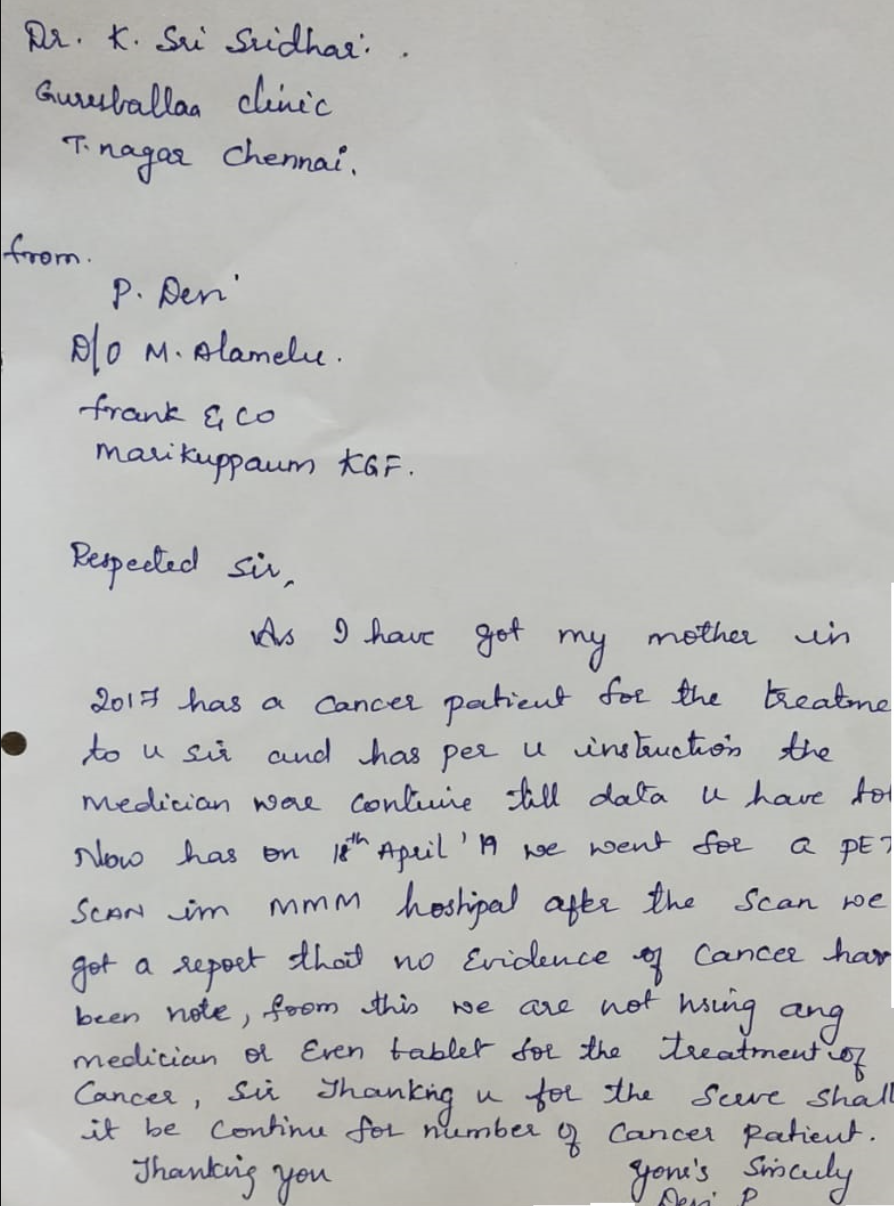 Dr. K. Sri Sridhar.
Gurusballaa clinic
T. nagar Chennai.
from.
P. Devi
D/o M. Alamelu.
frank & co
Marikuppaum KGF.
Respected Sir,
As I have got my mother in
2017 has a cancer patient for the treatme
to u sir and has per u instruction the
medician ware contuine till data u have to
Now has on 18th April '19 we went for a PET
SCAN im MMM hoshipal after the Scan we
got a report that no Evidence of Cancer has
been note, from this we are not using any
medician or Even tablet for the treatment of
Cancer, Sir Thanking u for the Serve shall
it be Continu for number of Cancer Patient.
Thanking you
Your's Sinculy
Devi P